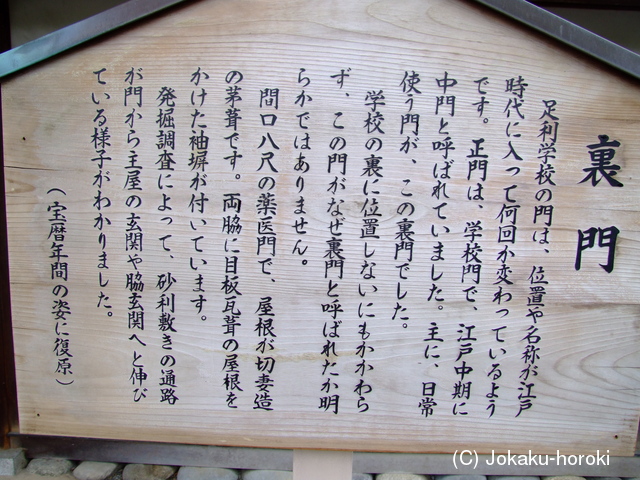 裏門
足利学校の門は、位置や名称が江戸
時代に入って何回か変わっているよう
です。正門は、学校門で、江戸中期に
中門と呼ばれていました。主に、日常
使う門が、この裏門でした。
学校の裏に位置しないにもかかわら
ず、この門がなぜ裏門と呼ばれたか明
らかではありません。
間口八尺の薬医門で、屋根が切妻造
の茅葺です。両脇に目板瓦葺の屋根を
かけた袖塀が付いています。
発掘調査によって、砂利敷きの通路
が門から主屋の玄関や脇玄関へと伸び
ている様子がわかりました。
(宝暦年間の姿に復原)
(C) Jokaku-horoki